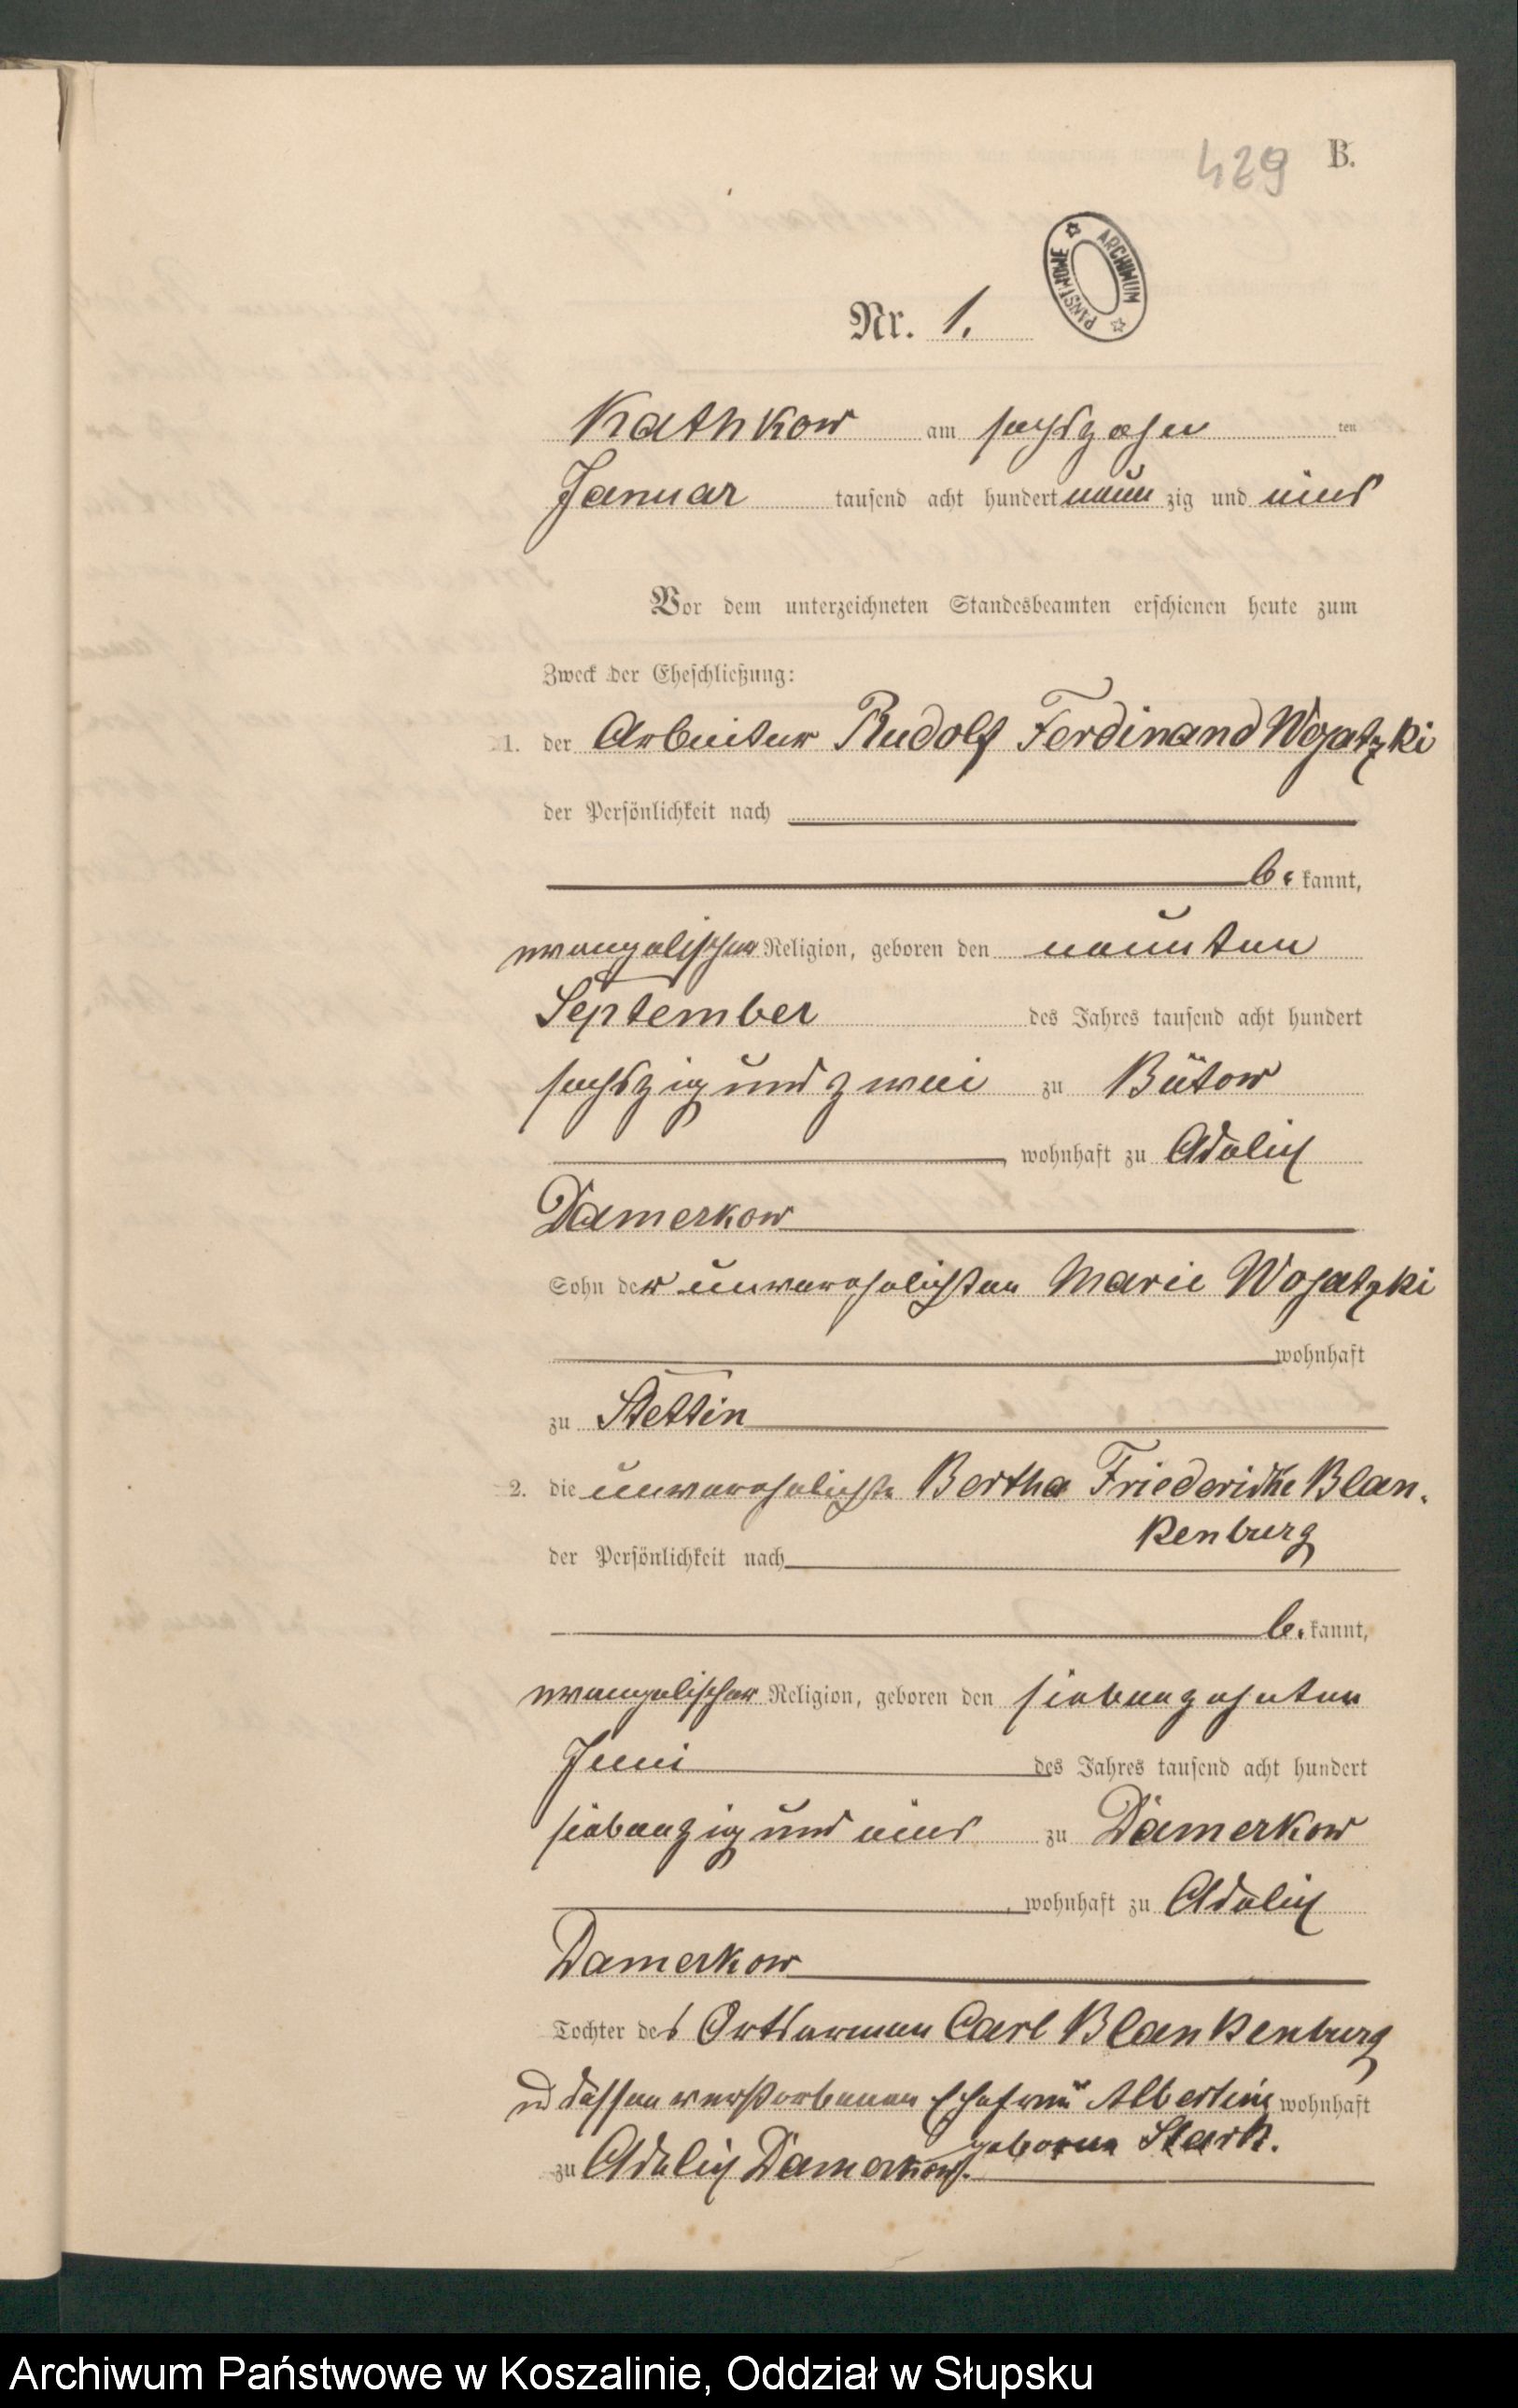 429 B.
ARCHIWUM PAŃSTWOWE
Nr. 1.
Kathkow am sechszehn ten
Januar tausend acht hundert neun zig und eins
Vor dem unterzeichneten Standesbeamten erschienen heute zum
Zweck der Eheschließung:
1. der Arbeiter Rudolf Ferdinand Wojatzki
der Persönlichkeit nach
be kannt,
evangelischer Religion, geboren den neunten
September des Jahres tausend acht hundert
sechszig und zwei zu Bütow
, wohnhaft zu Adelig
Damerkow
Sohn der unverehelichten Marie Wojatzki
wohnhaft
zu Stettin
2. die unverehelichte Bertha Friederike Blan-
kenburg
der Persönlichkeit nach
be kannt,
evangelischer Religion, geboren den siebenzehnten
Juni des Jahres tausend acht hundert
siebenzig und eins zu Damerkow
, wohnhaft zu Adelig
Damerkow
Tochter des Ortsarmen Carl Blankenburg
und dessen verstorbenen Ehefrau Albertine wohnhaft
geborne Stark.
zu Adelig Damerkow.
Archiwum Państwowe w Koszalinie, Oddział w Słupsku